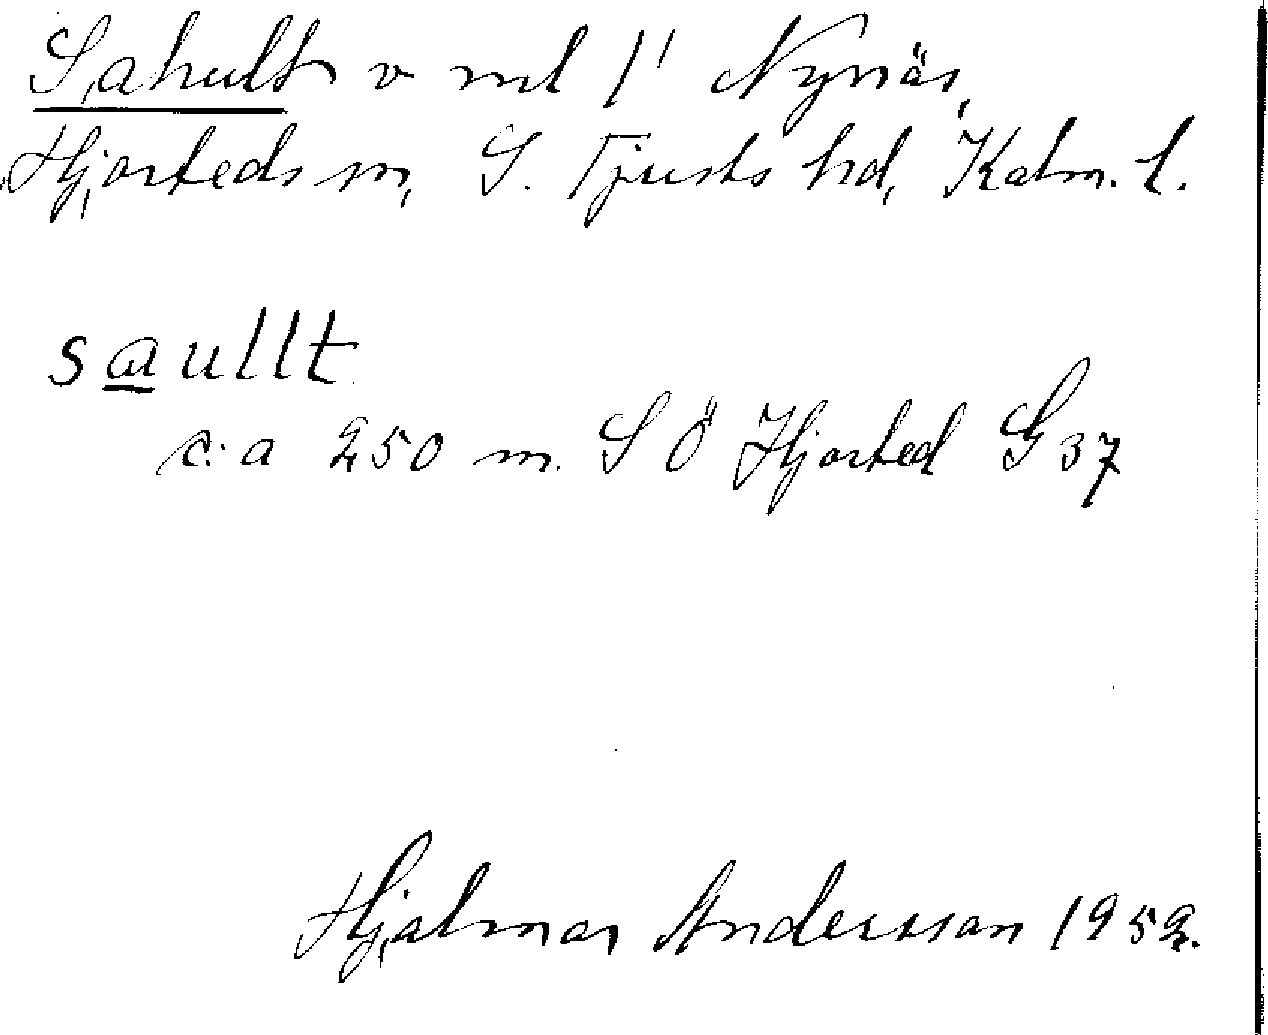 Sahult v md 1' Nynäs,
Hjorteds sn, S. Tjusts hd, Kalm. l.
saullt
c:a 250 m. SÖ Hjorted G 37
Hjalmar Andersson 1952.